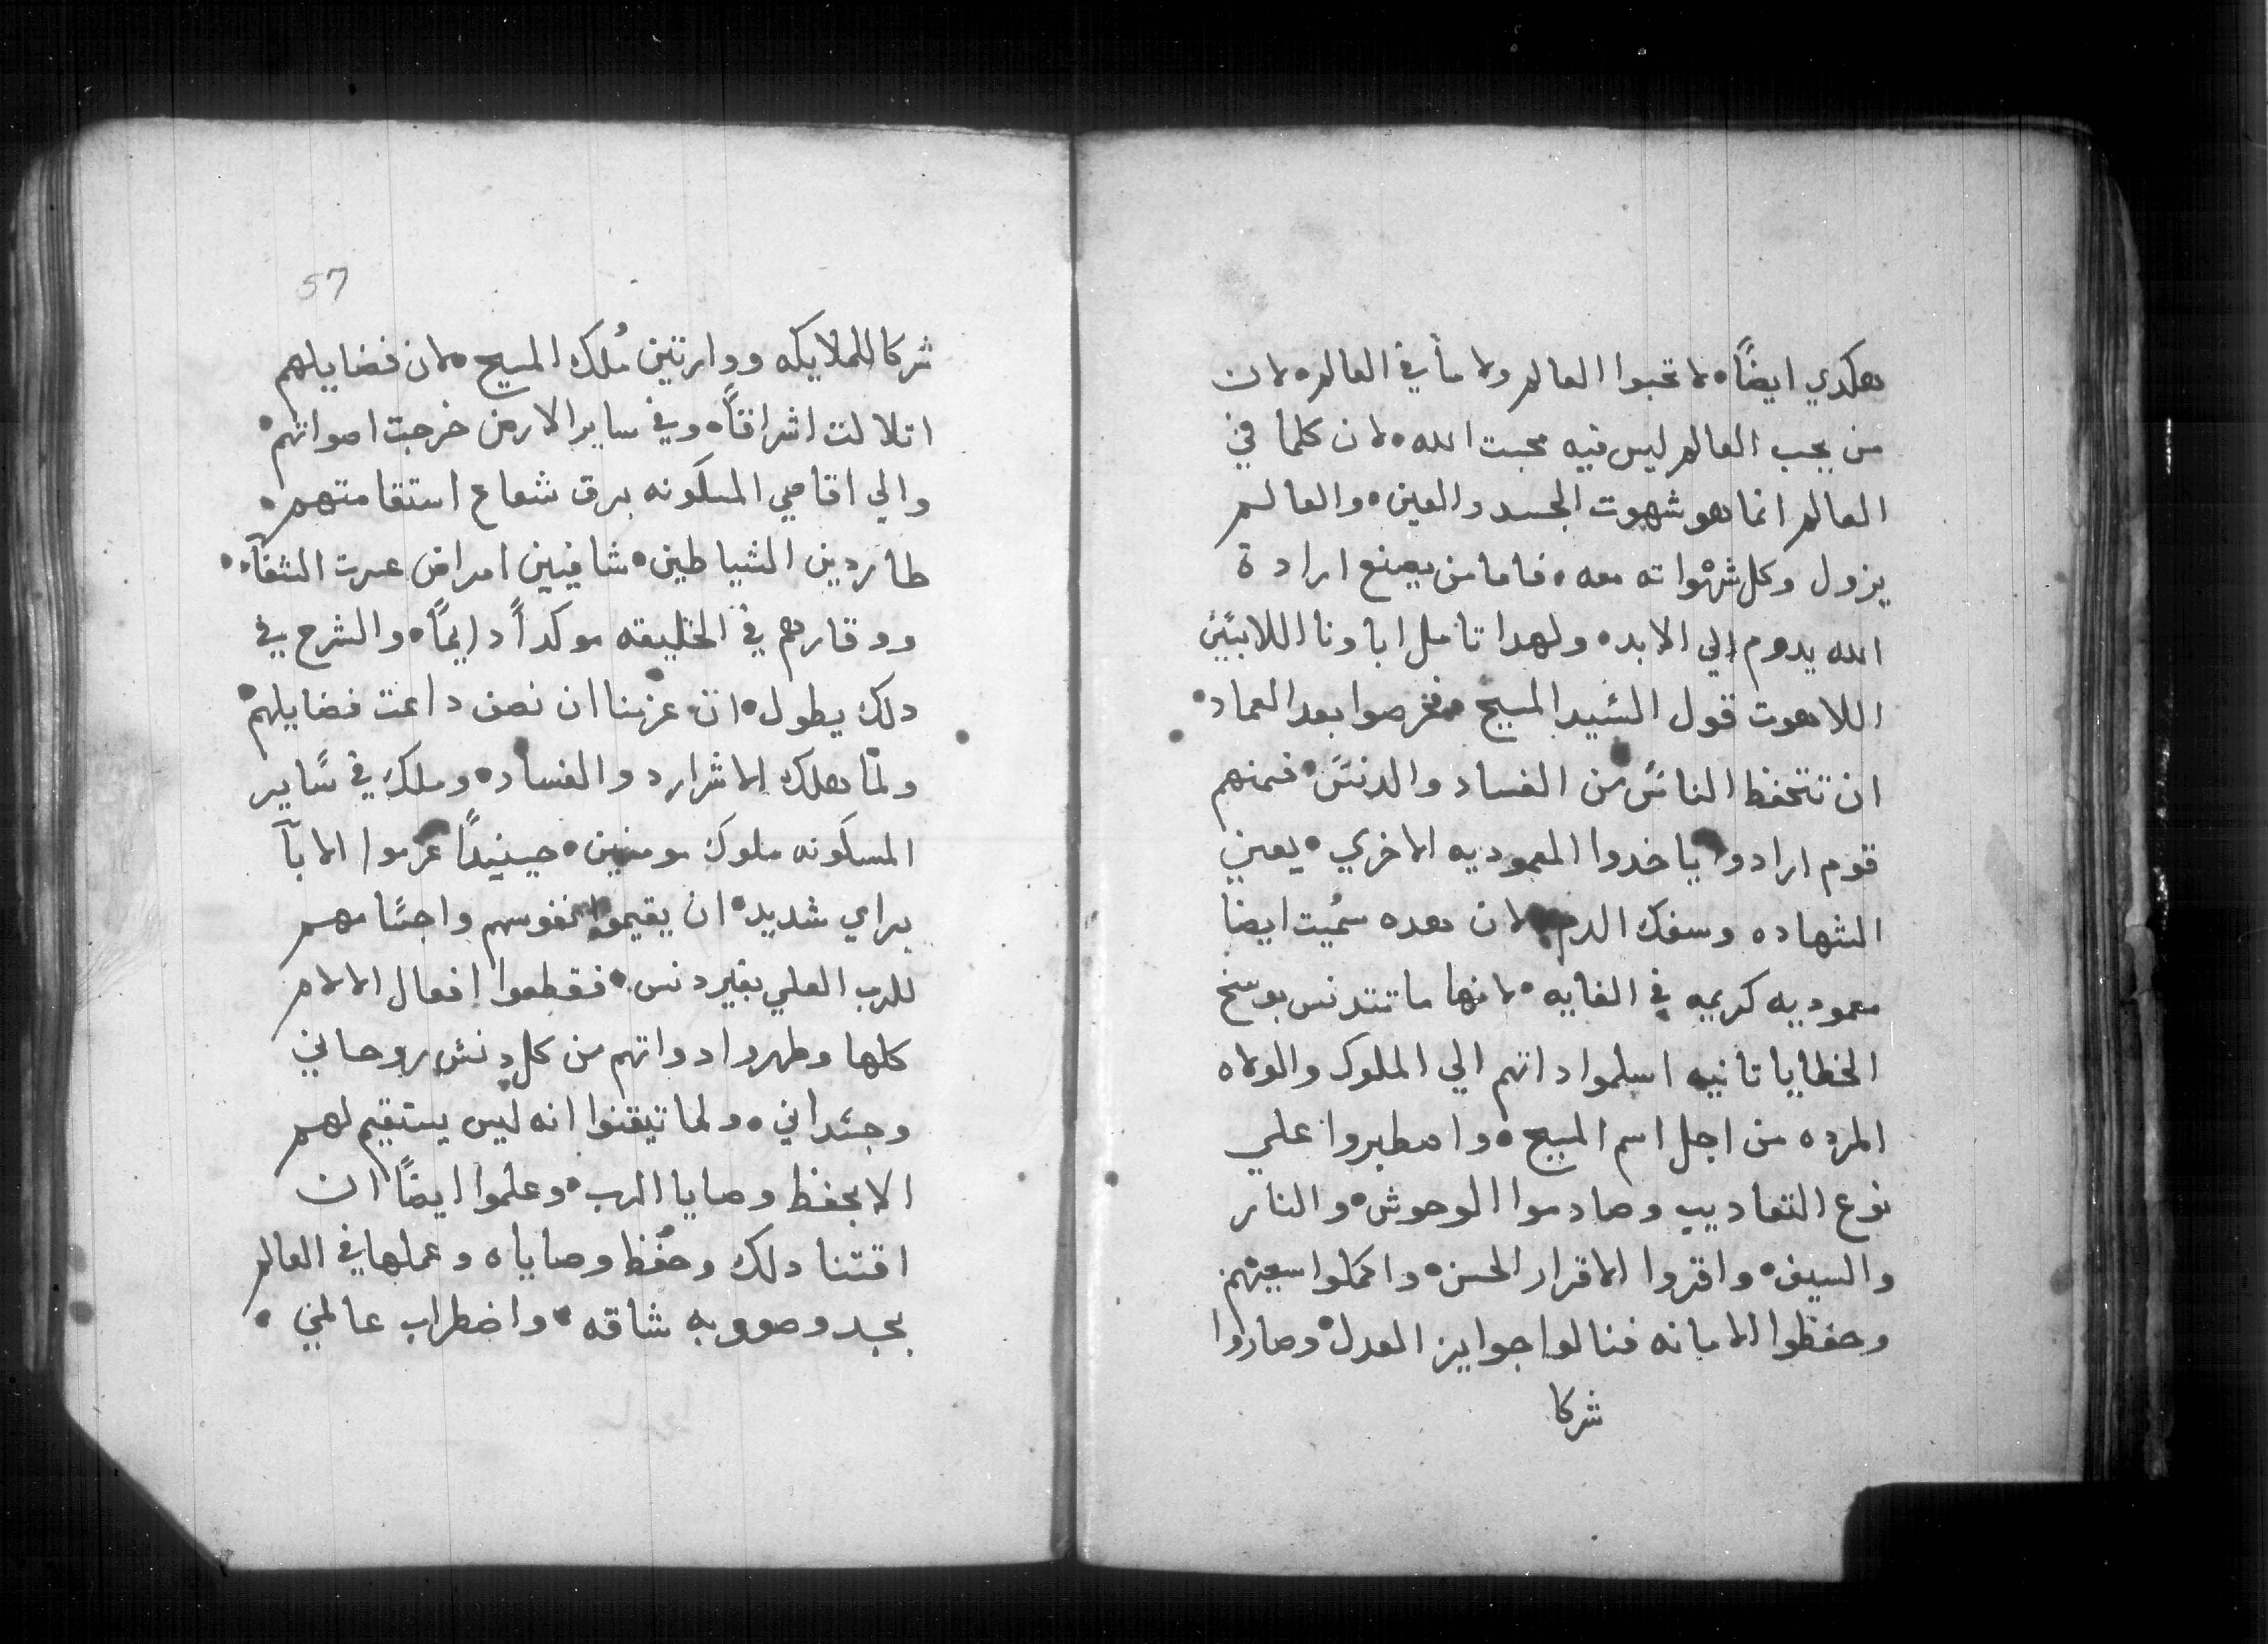 هكدي ايضاً• لا تحبوا العالم ولا ما في العالم• لان
من يحب العالم ليس فيه محبت الله• لان كلما في
العالم انما هو شهوت الجسد والعين• والعالم
يزول وكل شهواته معه• فاما من يصنع ارادة
الله يدوم الي الابد• ولهدا تامل اباونا اللابسين
اللاهوت قول السيد المسيح فحرصوا بعد العماد•
ان تتحفظ الناس من الفساد والدنس• فمنهم
قوم ارادوا ياخدوا المعموديه الاخري• يعني
الشهاده وسفك الدم• لان هده سميت ايضا
معموديه كريمه في الغايه• لانها ما تتدنس بوسخ
الخطايا تانيه اسلموا داتهم الي الملوك والولاه
المرده من اجل اسم المسيح• واصطبروا علي
نوع التعاديب وصادموا الوحوش• والنار
والسيف• واقروا الاقرار الحسن• واكملوا سعيهم
وحفظوا الامانه فنالوا جوايز العدل• وصاروا
شركا
57
شركا للملايكه ووارتين مُلك المسيح• لان فضايلهم
اتلالت اشراقاً• وفي ساير الارض خرجت اصواتهم•
والي اقاصي المسكونه برق شعاع استقامتهم•
طاردين الشياطين• شافيين امراض عسرت الشفآ•
ووقارهم في الخليقه موكداً دايماً• والشرح في
دلك يطول• ان عزمنا ان نصف داعت فضايلهم•
ولمّا هلك الاشرار د والفساد• وملك في ساير
المسكونه ملوك مومنين• حينيداً عزموا الابآ
براي شديد• ان يقيموا نفوسهم واجسامهم
للرب العلي بغير دنس• فقطعوا افعال الالام
كلها وطهروا دواتهم من كل دنس روحاني
وجسداني• ولما تيقنوا انه ليس يستقيم لهم
الا بحفظ وصايا الرب• وعلموا ايضاً ان
اقتنا دلك وحفظ وصاياه وعملها في العالم
بجد وصووبه شاقه• واضطراب عالمي•